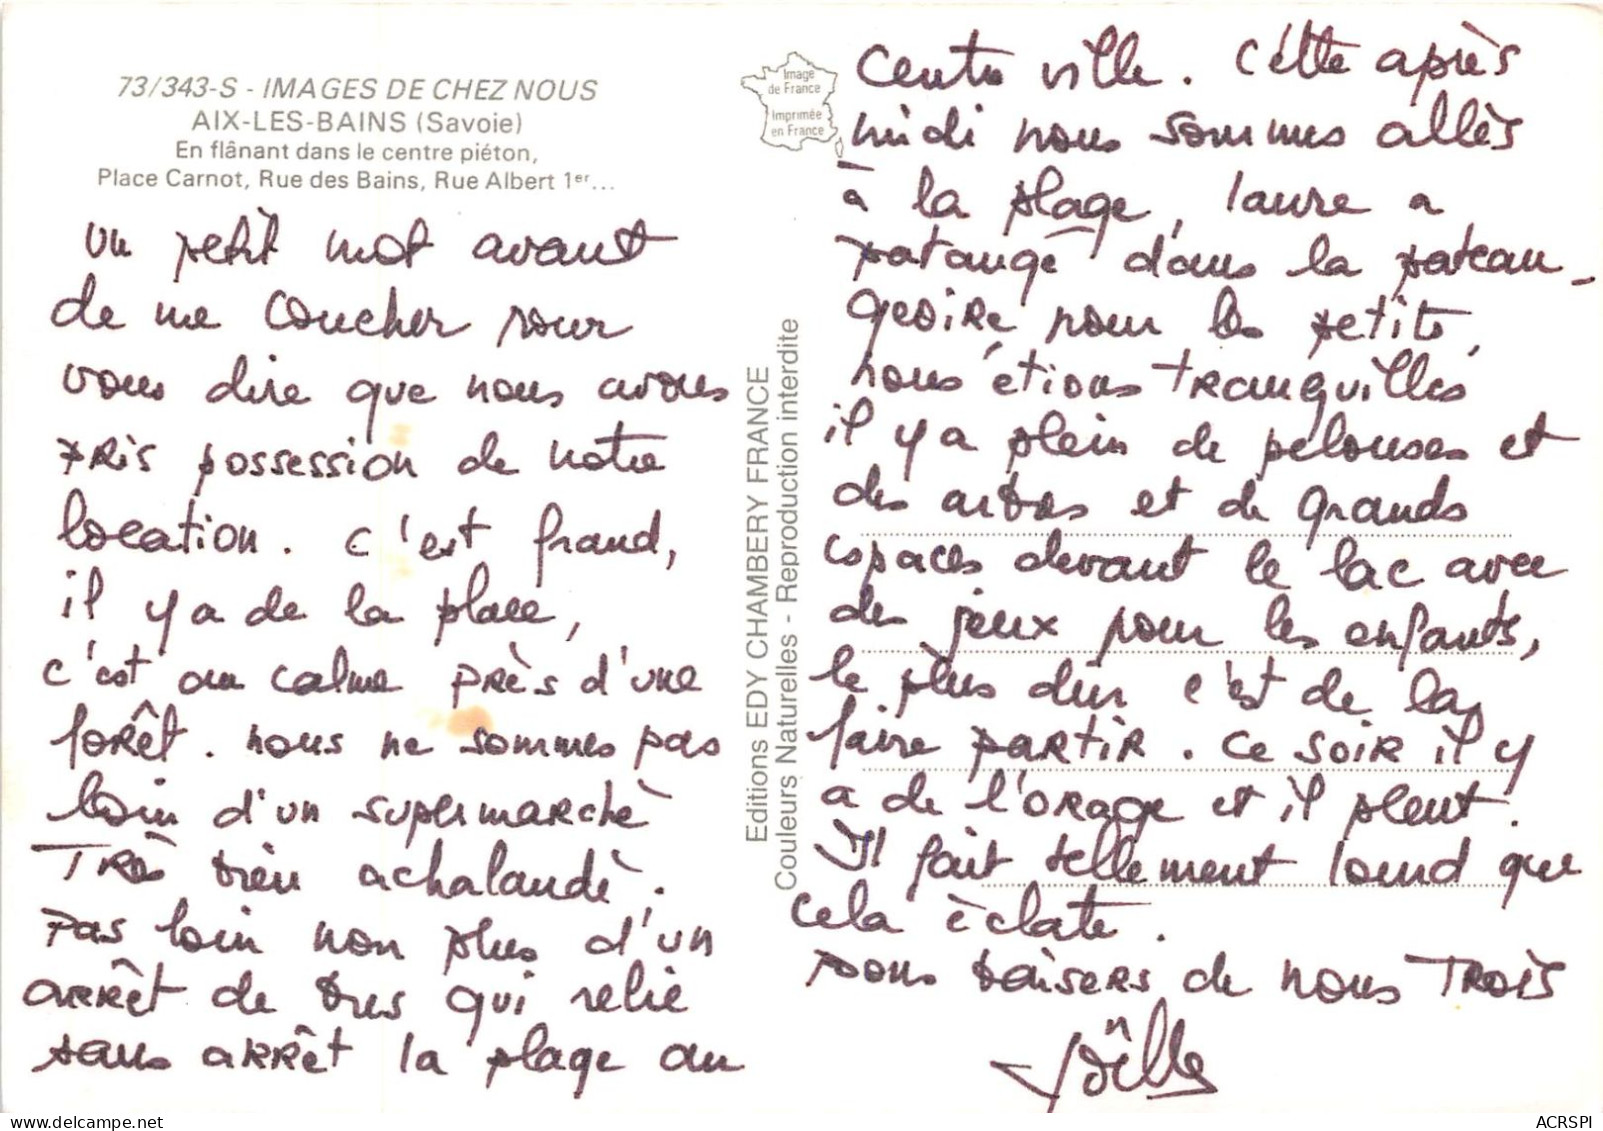 73/343-S - IMAGES DE CHEZ NOUS
AIX-LES-BAINS (Savoie)
En flânant dans le centre piéton,
Place Carnot, Rue des Bains, Rue Albert 1er...
un petit mot avant
de me coucher pour
vous dire que nous avons
pris possession de notre
location. c'est grand,
il y a de la place,
c'est au calme près d'une
forêt. nous ne sommes pas
loin d'un supermarché
Très bien achalandé.
Pas loin non plus d'un
arrêt de bus qui relie
sans arrêt la plage au
Editions EDY CHAMBERY FRANCE
Couleurs Naturelles - Reproduction interdite
Image
de France
Imprimée
en France
Centre ville. Cette après
midi nous sommes allès
à la plage, laure a
patangé dans la patean-
geoire, pour les petits,
nous étions tranquilles
il y a plein de pelouses et
des arbres et de grands
espaces devant le lac avec
des jeux pour les enfants,
le plus dur c'est de la
faire partir. Ce soir il y
a de l'orage et il pleut.
Il fait tellement lourd que
cela éclate.
bons baisers de nous Trois
Joëlle
ACRSPI